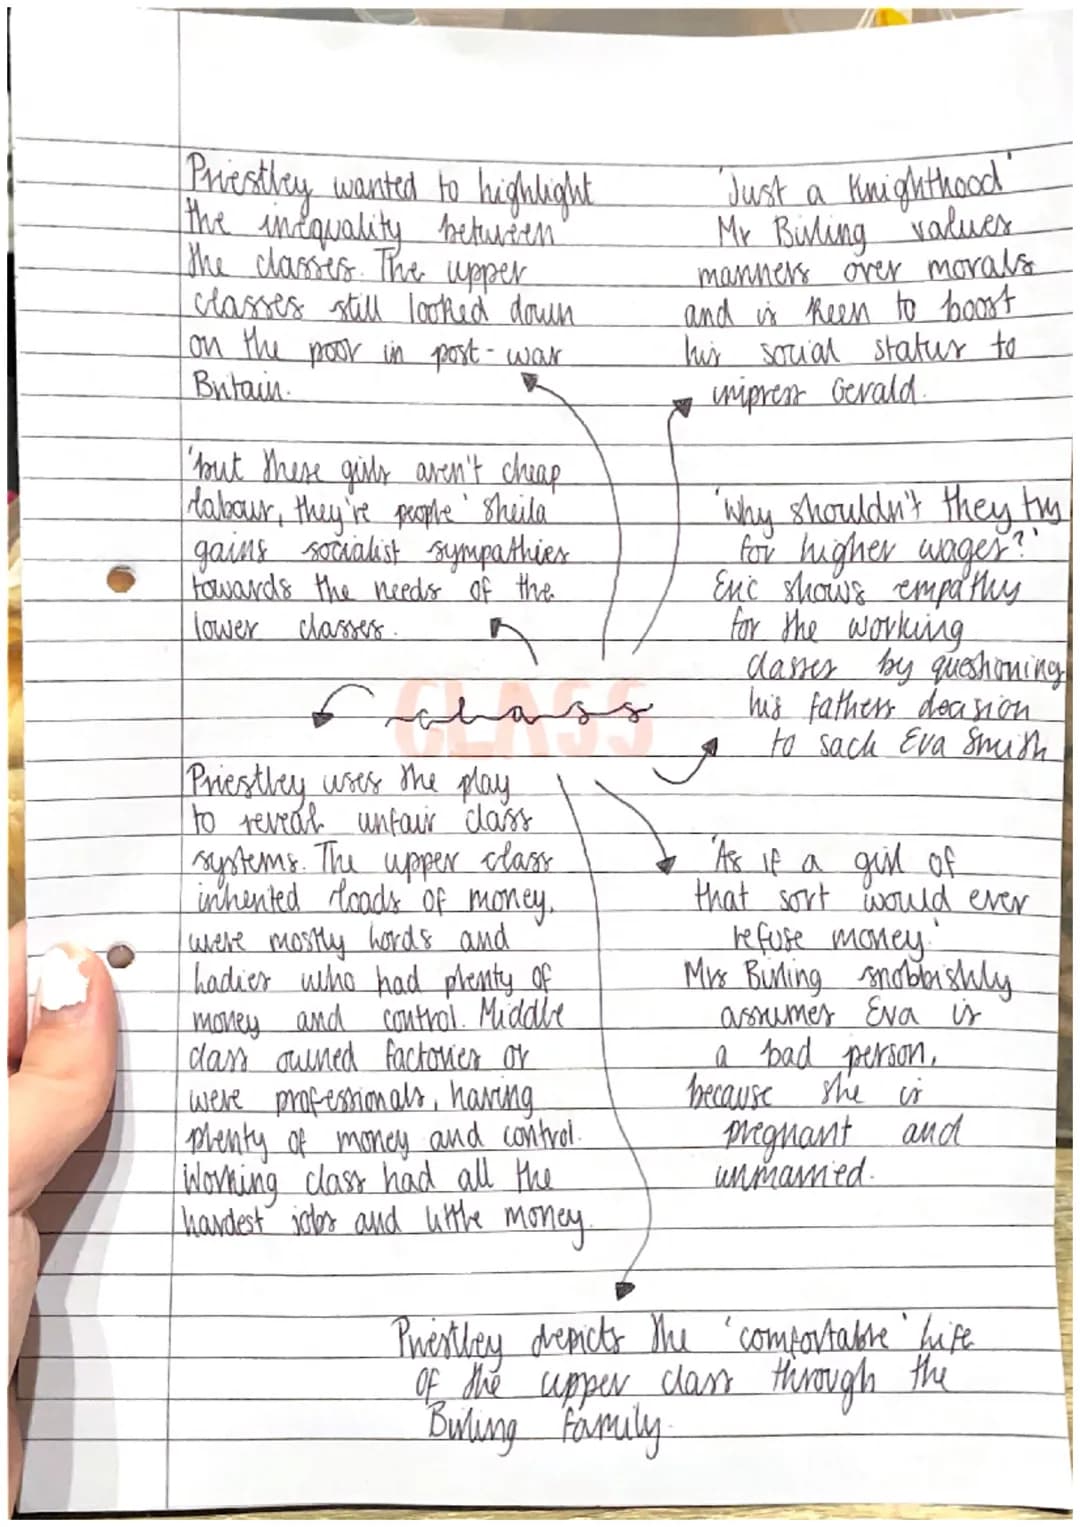 Priestley wanted to highlight
the inequality between
the classes. The upper
classes still looked down
on the poor in post-war
Britain.
'Just a Knighthood'
Mr Birling values
manners over morals
and is keen to boost
his social status to
impress Gerald.
'but these girls aren't cheap
labour, they're people' Sheila
gains socialist sympathies
towards the needs of the
lower classes.
'Why shouldn't they try
for higher wages?'
Eric shows empathy
for the working
classes by questioning
his fathers decision
to sack Eva Smith
CLASS
class
Priestley uses the play
to reveal unfair class
systems. The upper class
inherited loads of money,
were mostly lords and
ladies who had plenty of
money and control. Middle
class owned factories or
were professionals, having
plenty of money and control.
Working class had all the
hardest jobs and little money.
'As if a girl of
that sort would ever
refuse money.'
Mrs Birling snobbishly
assumes Eva is
a bad person,
because she is
pregnant and
unmarried.
Priestley depicts the 'comfortable' life
of the upper class through the
Birling family.